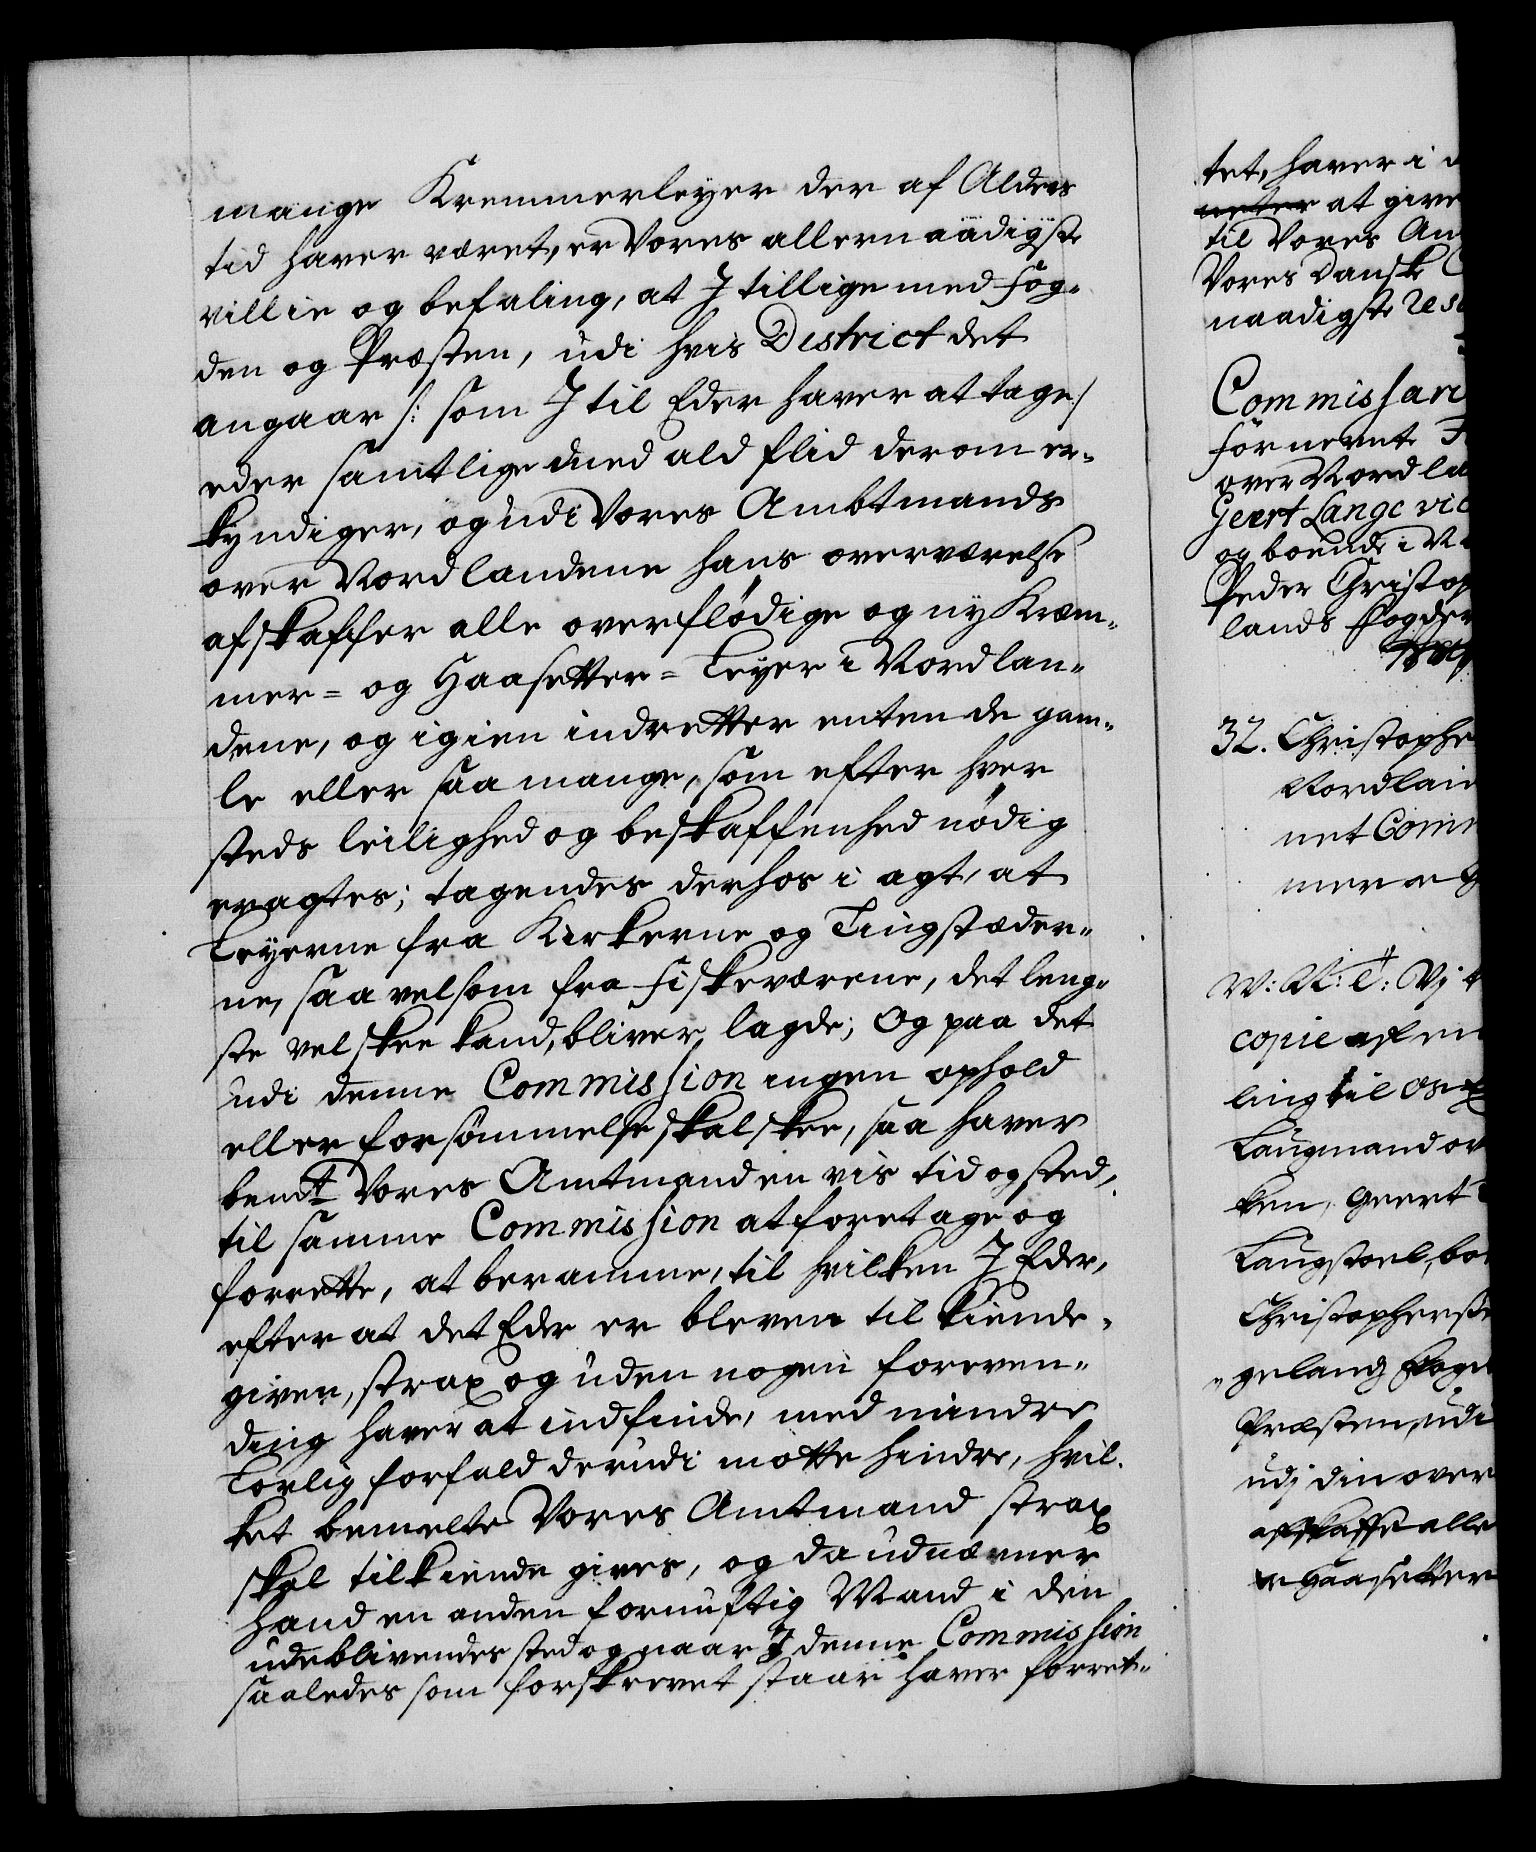 mange Kremmerleyer der af Alders
tid haver været, er Vores allernaadigste
villie og befaling, at I tillige med Fog-
den og Præsten, udi hvis District det
angaar /: som I til Eder haver at tage/
eder samtlige med ald flid derom er-
kyndiger, og udi Vores Ambtmands
over Nordlandene hans overværelse
afskaffer alle overflødige og ny Kræm-
mer= og Haasetter= Leyer i Nordlan-
dene, og igien indretter enten de gam-
le eller saa mange, som efter hver
steds leilighed og beskaffenhed nødig
eragtes; tagendes derhos i agt, at
Leyerne fra Kirkerne og Tingstæder-
ne, saavelsom fra Fiskeværene, det leng-
ste vel skee kand, bliver lagde; Og paa det
udi denne Commission ingen ophold
eller forsømmelse skal skee, saa haver
bemt Vores Amtmand en vis tid og sted,
til samme Commission at foretage og
forrette, at beramme, til hvilken I Eder,
efter at det Eder er bleven til kiende-
given, strax og uden nogen foreven-
ding haver at indfinde, med mindre
Lovlig forfald derudi motte hindre, hvil-
ket bemelte Vores Amtmand strax
skal tilkiende gives, og da udnævner
hand en anden fornuftig Mand i den
udeblivendes sted og naar I denne Commission
saaledes som forskrevet staar haver forret-
tet, haver i
at give
til Vores
Vores Dansk
naadigste
Commissari
Fornevnte
over Nordla
Geert Lange
og boende i
Peder Christop
lands Fogder
32. Christophe
Nordlan
net Comm
mer
W: A: T: Vj
copie af en
ling til os
Laugmand ov
ken, Geert
Laugstoel, bo
Christophers
geland Foge
Præsten, udi
udj din over
afskaffe alle
Haasetter